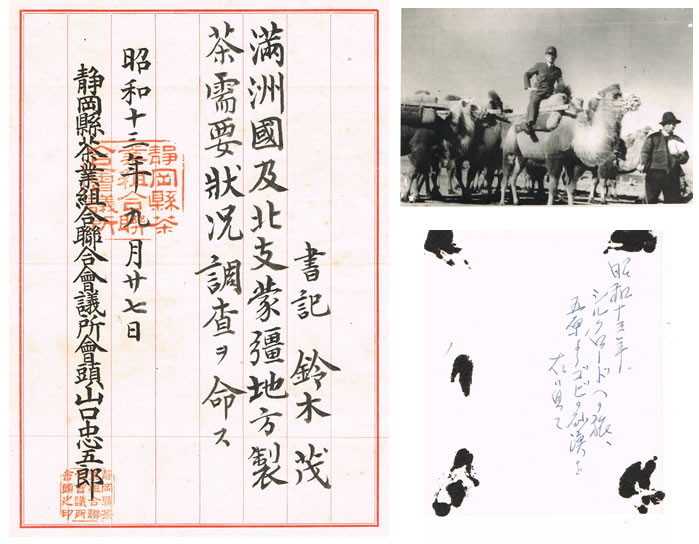 書記 鈴木茂
満洲國及北支蒙彊地方製
茶需要狀況調查ヲ命ス
昭和十三年九月廿七日
静岡縣茶業組合聯合會議所會頭山口忠五郎
静岡縣茶
業組合聯
合會議所
静岡縣茶
業組合聯
合會議所
會頭之印
昭和十三年、
シルクロードへの旅、
五原よりゴビの砂漠を
左に見て